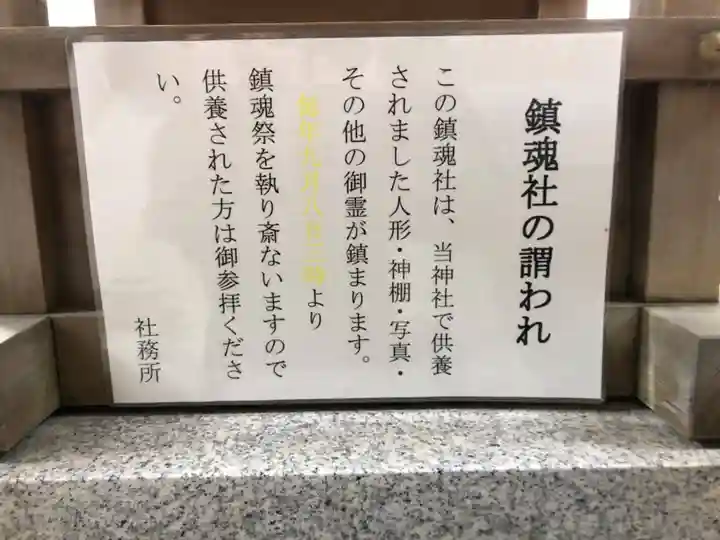 鎮魂社の謂われ
この鎮魂社は、当神社で供養
されました人形・神棚・写真・
その他の御霊が鎮まります。
毎年九月八日三時より
鎮魂祭を執り斎ないますので
供養された方は御参拝くださ
い。
社務所